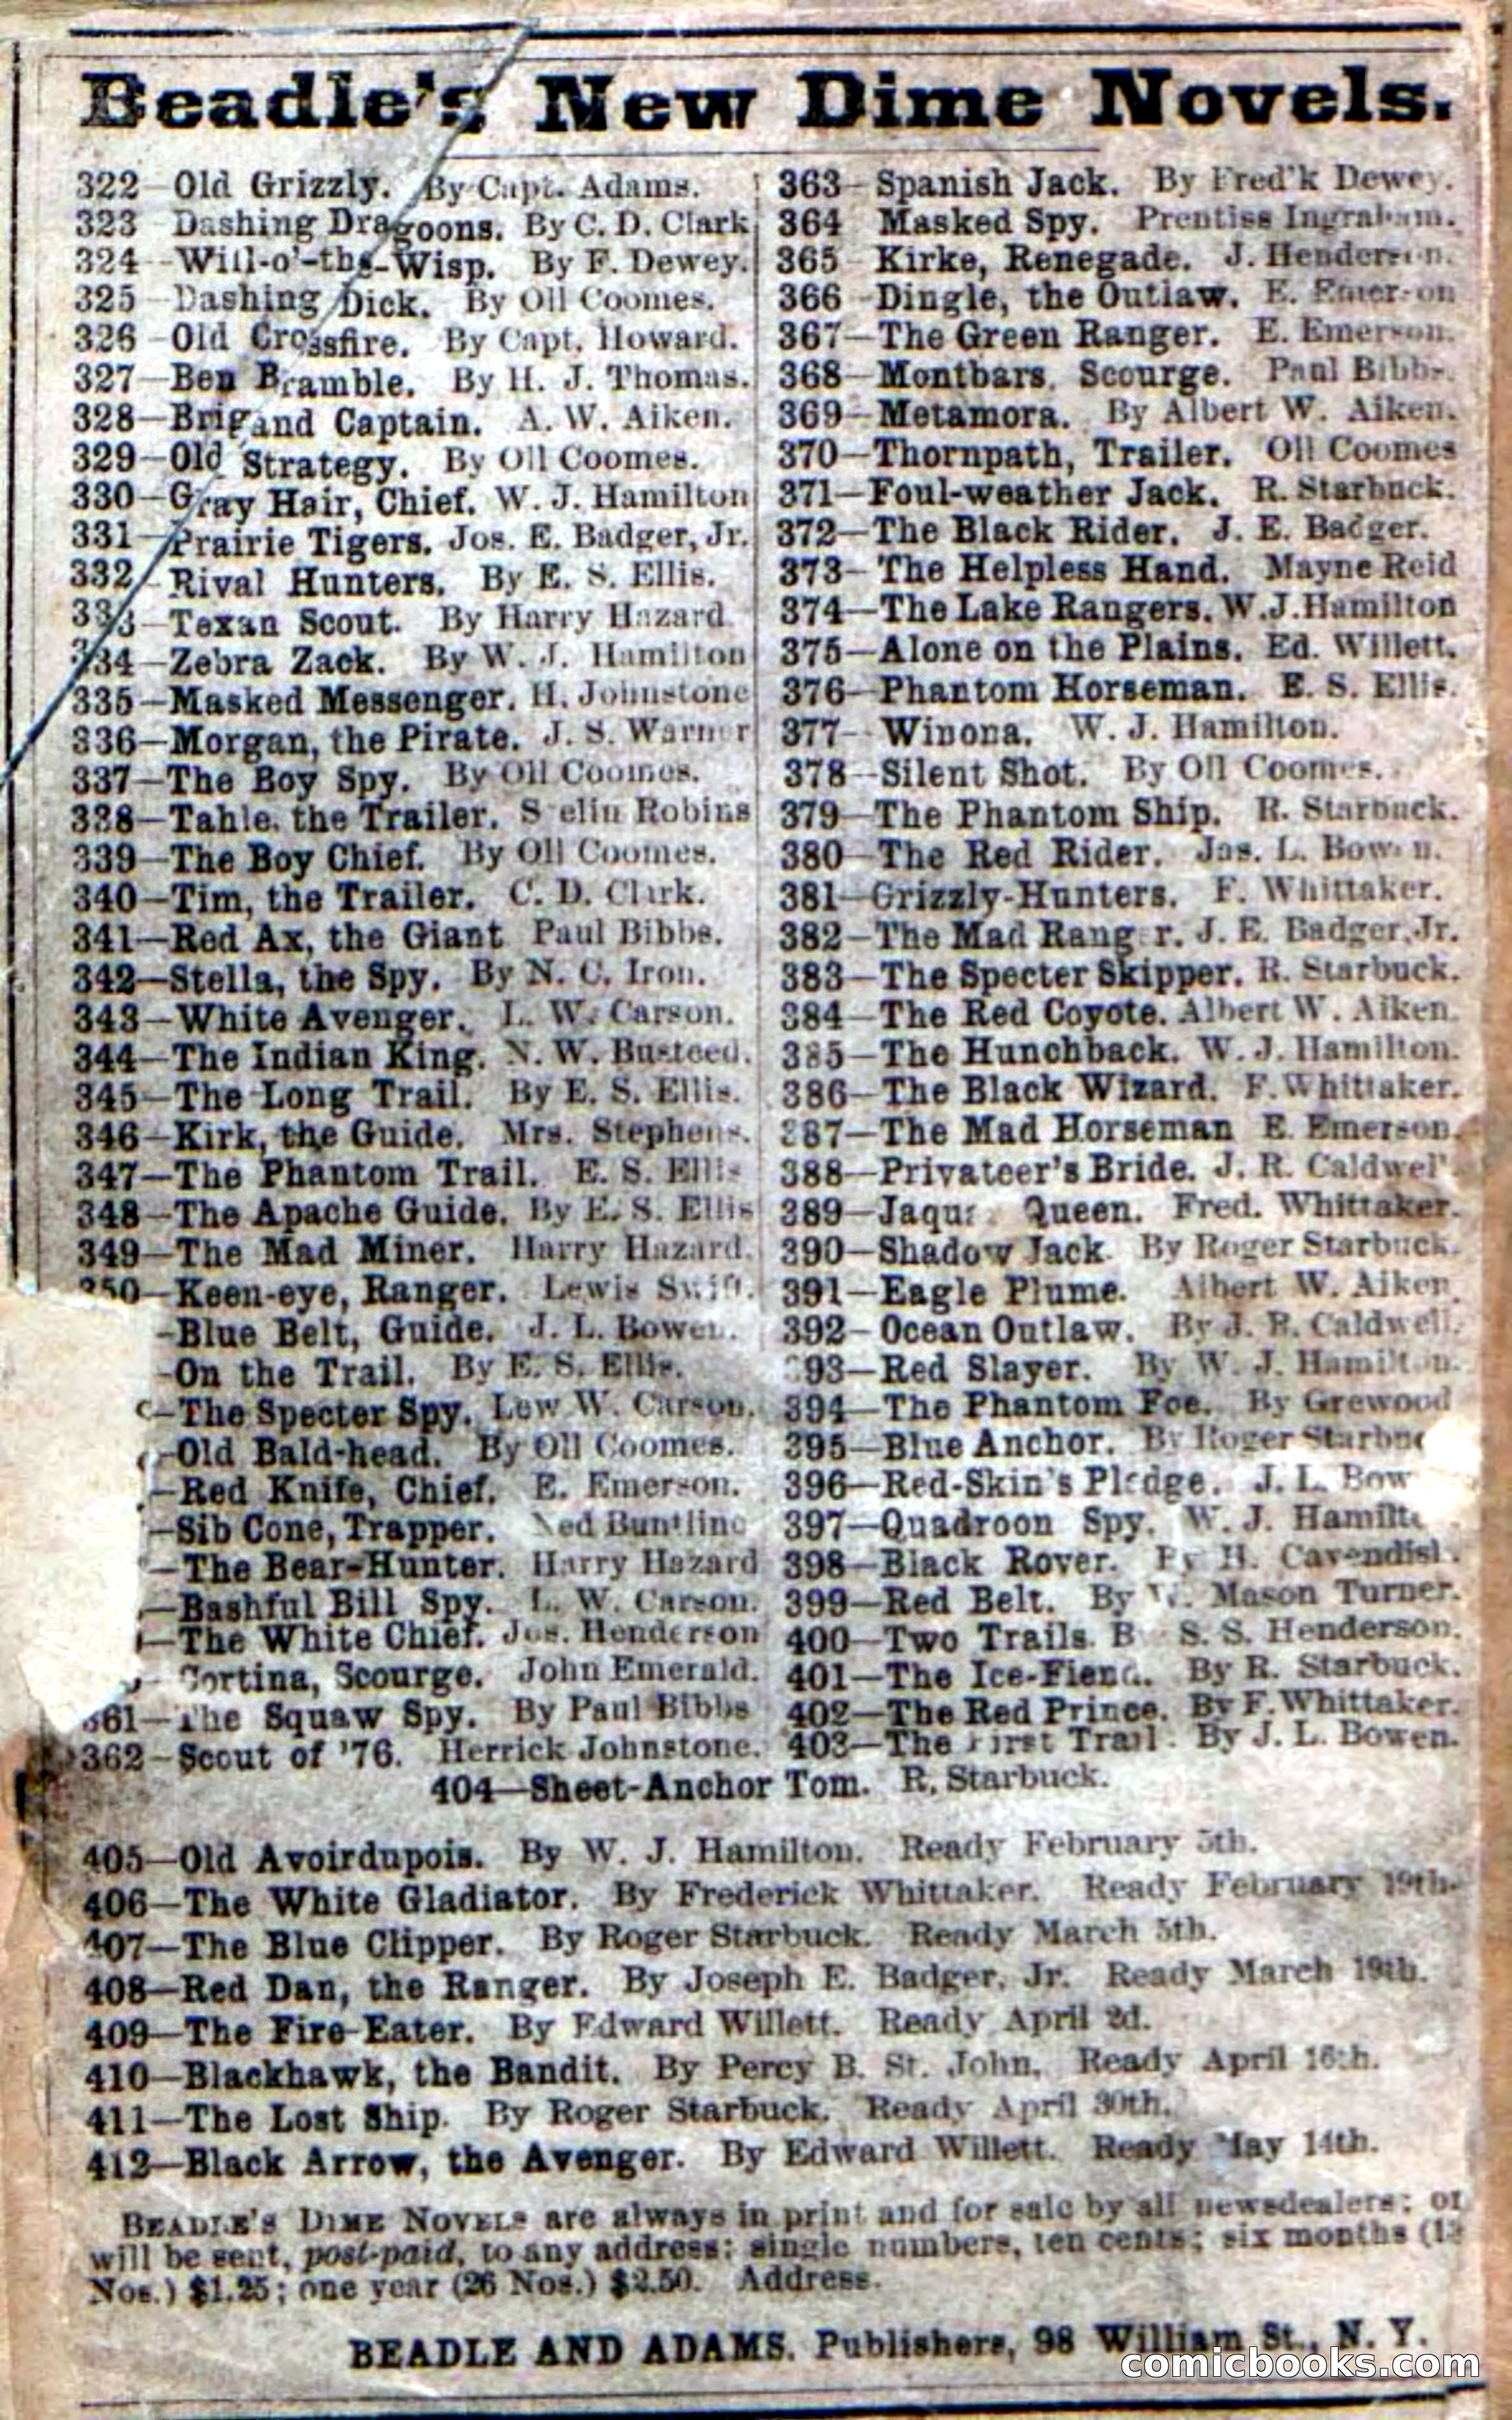 Beadle's New Dime Novels.
322—Old Grizzly. By Capt. Adams.
323 Dashing Dragoons. By C. D. Clark
324—Will-o'-the-Wisp. By F. Dewey.
325 Dashing Dick. By Oll Coomes.
326 Old Crossfire. By Capt. Howard.
327—Ben Bramble. By H. J. Thomas.
328—Brigand Captain. A. W. Aiken.
329—Old Strategy. By Oll Coomes.
330—Gray Hair, Chief. W. J. Hamilton
331—Prairie Tigers. Jos. E. Badger, Jr.
332 Rival Hunters. By E. S. Ellis.
333—Texan Scout. By Harry Hazard
334—Zebra Zack. By W. J. Hamilton
335—Masked Messenger. H. Johnstone
336—Morgan, the Pirate. J. S. Warner
337—The Boy Spy. By Oll Coomes.
338—Tahle, the Trailer. Robins
339—The Boy Chief. By Oll Coomes.
340—Tim, the Trailer. C. D. Clark.
341—Red Ax, the Giant Paul Bibbs.
342—Stella, the Spy. By N. C. Iron.
343—White Avenger. L. W. Carson.
344—The Indian King. N. W. Busteed.
345—The Long Trail. By E. S. Ellis.
346—Kirk, the Guide. Mrs. Stephens.
347—The Phantom Trail. E. S. Ellis
348—The Apache Guide. By E. S. Ellis
349—The Mad Miner. Harry Hazard.
350—Keen-eye, Ranger. Lewis Swift.
—Blue Belt, Guide. J. L. Bowen.
—On the Trail. By E. S. Ellis.
—The Specter Spy. Lew W. Carson.
—Old Bald-head. By Oll Coomes.
—Red Knife, Chief. E. Emerson.
—Sib Cone, Trapper. Ned Buntline
—The Bear-Hunter. Harry Hazard
—Bashful Bill Spy. L. W. Carson.
—The White Chief. Jos. Henderson
Cortina, Scourge. John Emerald.
361—The Squaw Spy. By Paul Bibbs
362—Scout of '76. Herrick Johnstone.
363—Spanish Jack. By Fred'k Dewey.
364 Masked Spy. Prentiss Ingraham.
365 Kirke, Renegade. J. Henderson.
366—Dingle, the Outlaw. E. Emerson
367—The Green Ranger. E. Emerson.
368—Montbars, Scourge. Paul Bibbs.
369—Metamora. By Albert W. Aiken.
370—Thornpath, Trailer. Oll Coomes
371—Foul-weather Jack. R. Starbuck.
372—The Black Rider. J. E. Badger.
373—The Helpless Hand. Mayne Reid
374—The Lake Rangers. W. J. Hamilton
375—Alone on the Plains. Ed. Willett.
376—Phantom Horseman. E. S. Ellis.
377—Winona. W. J. Hamilton.
378—Silent Shot. By Oll Coomes.
379—The Phantom Ship. R. Starbuck.
380—The Red Rider. Jas. L. Bowen.
381—Grizzly-Hunters. F. Whittaker.
382—The Mad Ranger. J. E. Badger, Jr.
383—The Specter Skipper. R. Starbuck.
384—The Red Coyote. Albert W. Aiken.
385—The Hunchback. W. J. Hamilton.
386—The Black Wizard. F. Whittaker.
387—The Mad Horseman E. Emerson.
388—Privateer's Bride. J. R. Caldwell
389—Queen. Fred. Whittaker.
390—Shadow Jack. By Roger Starbuck.
391—Eagle Plume. Albert W. Aiken.
392—Ocean Outlaw. By J. R. Caldwell.
393—Red Slayer. By W. J. Hamilton.
394—The Phantom Foe. By Grewood
395—Blue Anchor. By Roger Starbuc
396—Red-Skin's Pledge. J. L. Bow
397—Quadroon Spy. W. J. Hamilto
398—Black Rover. By H. Cavendish.
399—Red Belt. By W. Mason Turner.
400—Two Trails. B S. S. Henderson.
401—The Ice-Fiend. By R. Starbuck.
402—The Red Prince. By F. Whittaker.
403—The First Trail. By J. L. Bowen.
404—Sheet-Anchor Tom. R. Starbuck.
405—Old Avoirdupois. By W. J. Hamilton. Ready February 5th.
406—The White Gladiator. By Frederick Whittaker. Ready February 19th.
407—The Blue Clipper. By Roger Starbuck. Ready March 5th.
408—Red Dan, the Ranger. By Joseph E. Badger, Jr. Ready March 19th.
409—The Fire-Eater. By Edward Willett. Ready April 2d.
410—Blackhawk, the Bandit. By Percy B. St. John. Ready April 16th.
411—The Lost Ship. By Roger Starbuck. Ready April 30th.
412—Black Arrow, the Avenger. By Edward Willett. Ready May 14th.
BEADLE'S DIME NOVELS are always in print and for sale by all newsdealers; or
will be sent, post-paid, to any address: single numbers, ten cents; six months (13
Nos.) $1.25; one year (26 Nos.) $2.50. Address.
BEADLE AND ADAMS. Publishers, 98 William St., N. Y.
comicbooks.com